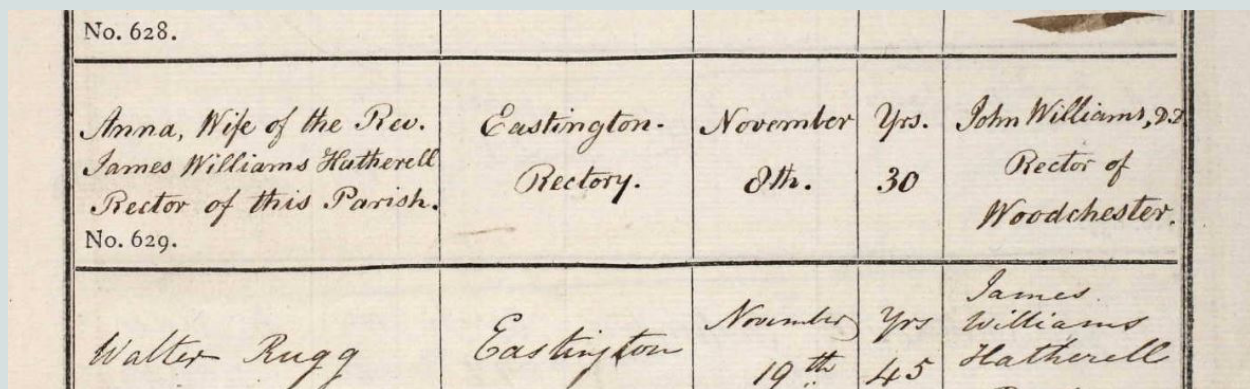 No. 628.
Anna, Wife of the Rev.
James Williams Hatherell
Rector of this Parish.
No. 629.
Eastington
Rectory.
November
8th.
Yrs.
30
John Williams, D.D
Rector of
Woodchester.
Walter Rugg
Eastington
November
19th
Yrs
45
James
Williams
Hatherell